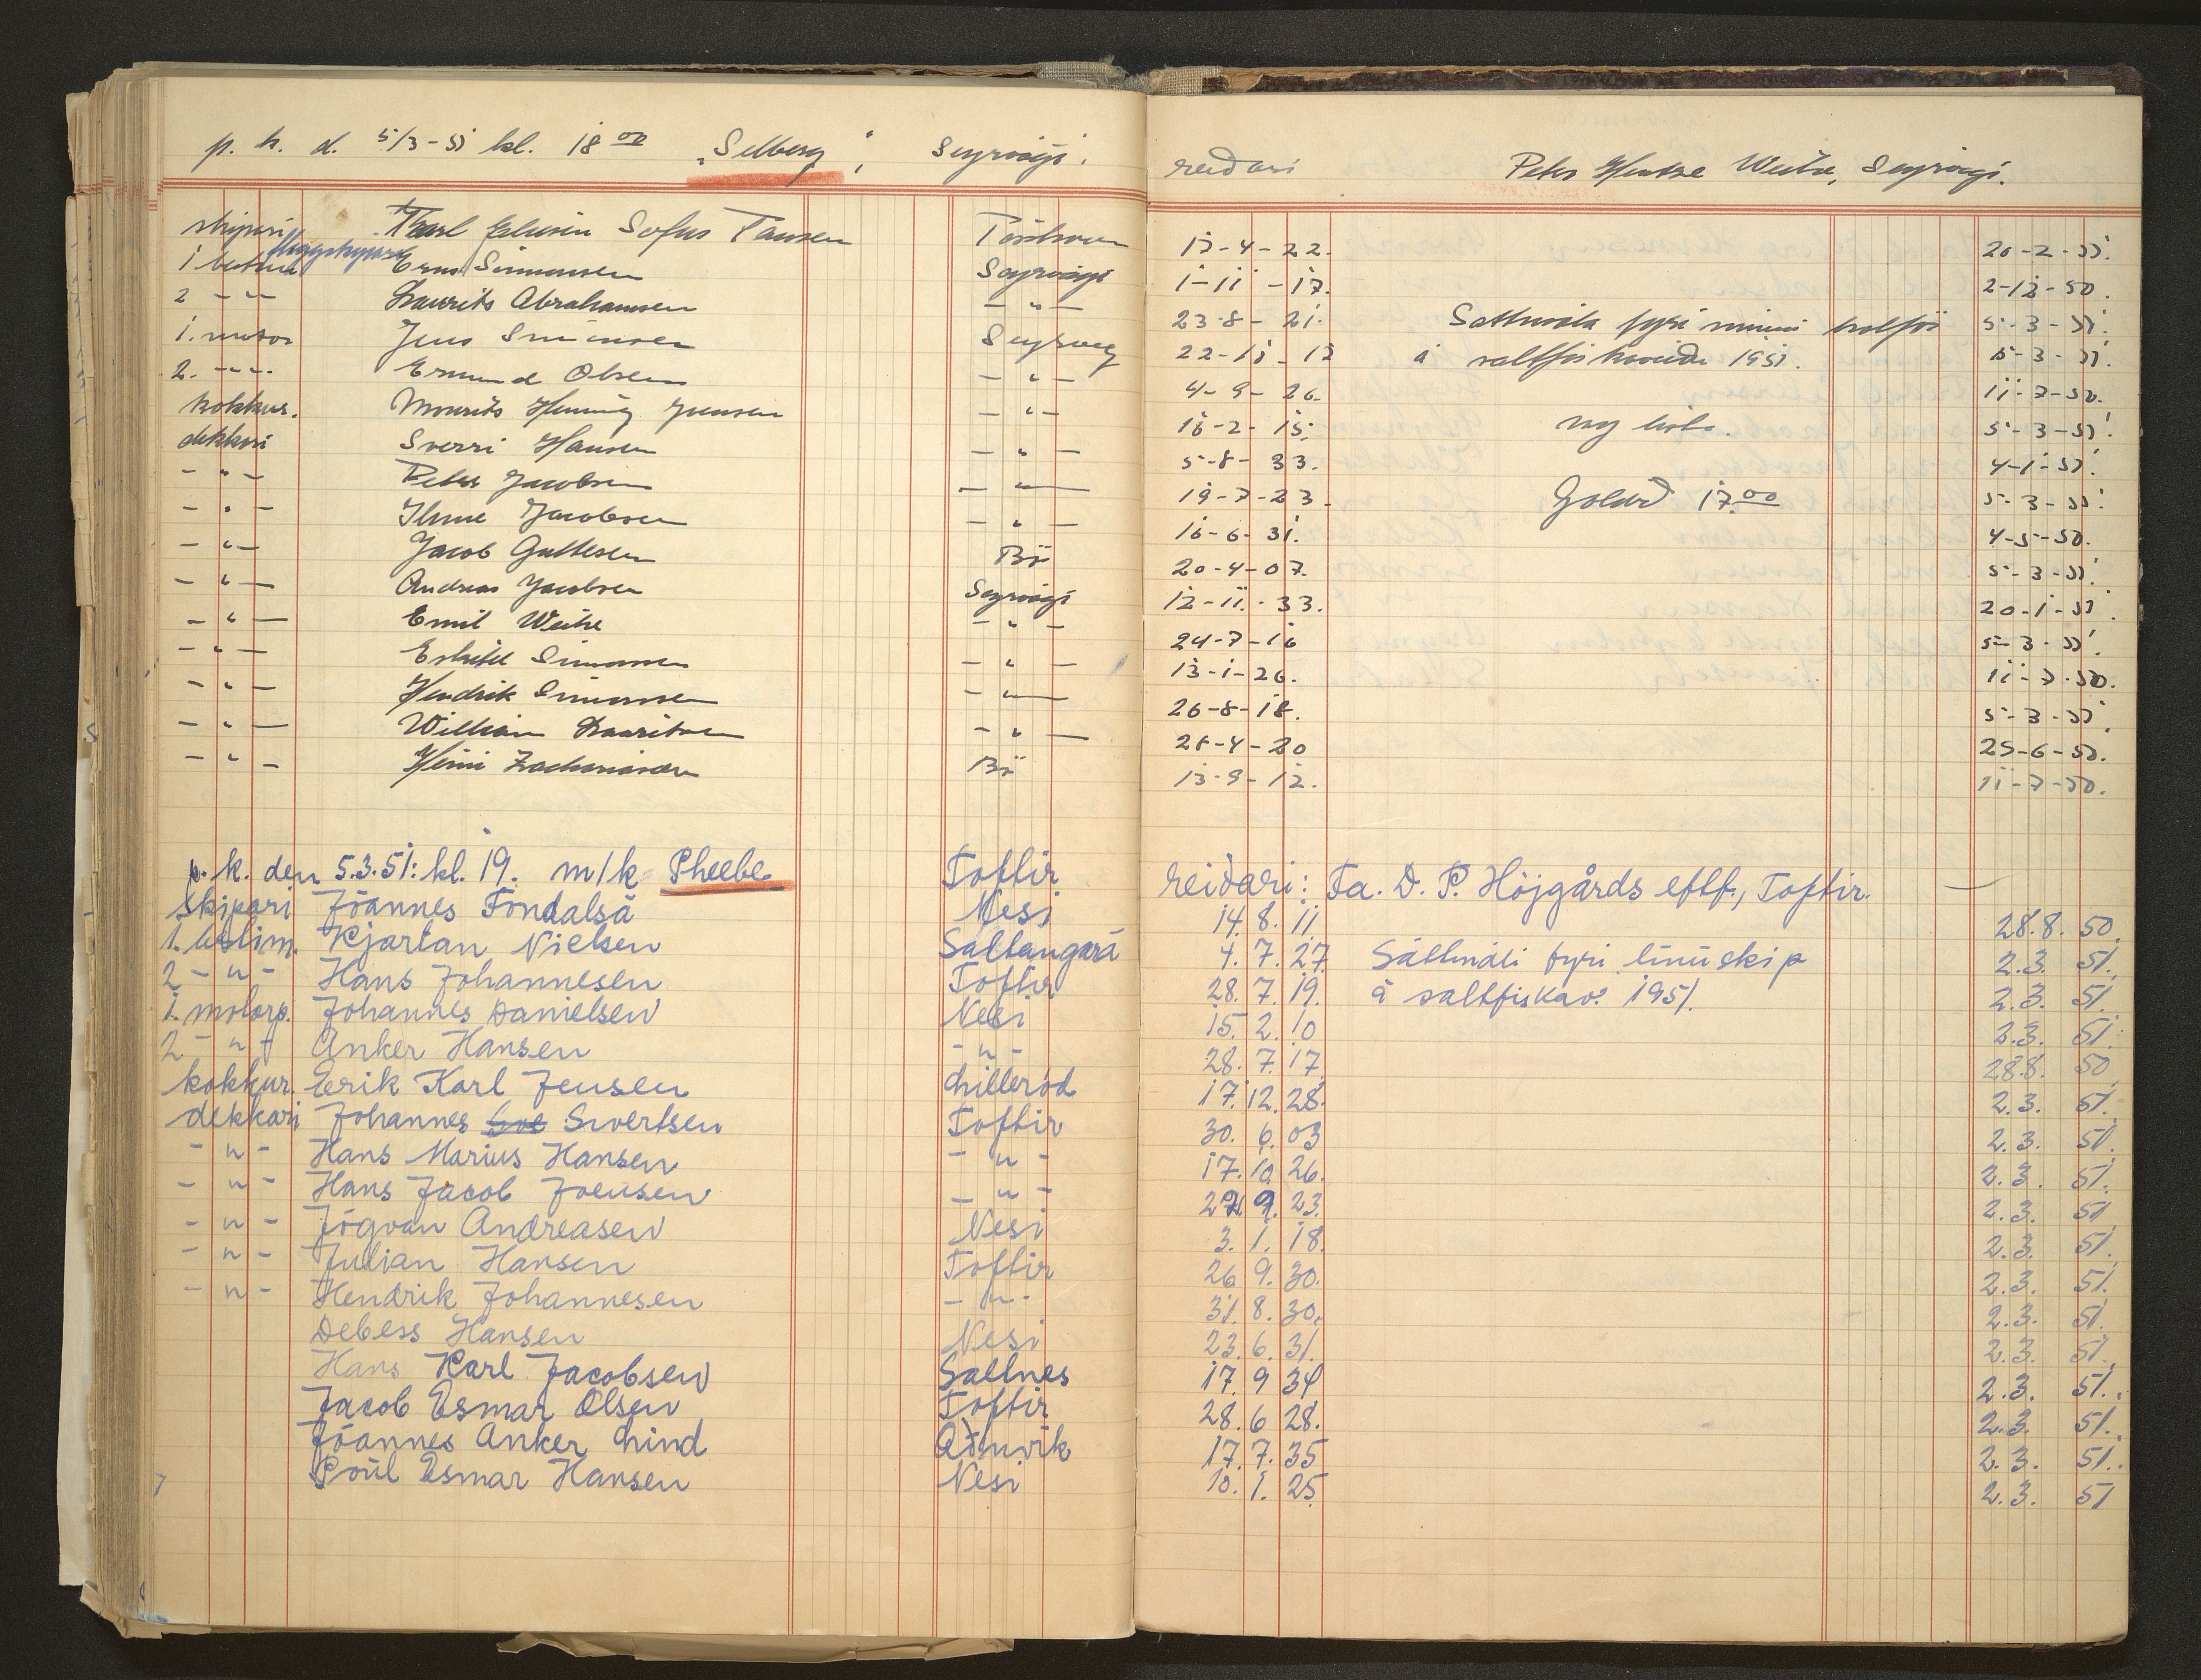 p. k. d. 5/3-51 kl. 18 00 "Selberg", Seyrvági. reiðari Peter Hentze Weihe, Seyrvági.
skipari Karl Sofus Hansen Tórshavn 17-4-22. 20-2-51.
1 bestim Simonsen Seyrvági 1-11-17. 2-12-50.
2 - " - Laurits Abrahamsen - " - 23-8-21. Sáttmála fyri 5-3-51.
1. motor Jens Simonsen Seyrvág 22-11-12 á 1951. 5-3-51.
2. - " - Ermund Olsen - " - 4-9-26. 11-7-50.
kokkur. Mourits Henning Joensen - " - 18-2-15. ny liste. 5-3-51.
dekkari Sverri Hansen - " - 5-8-33. 4-1-51.
- " - Peter Jacobsen - " - 19-7-23. Goldið 17.00 5-3-51.
- " - Jacobsen - " - 16-6-31. 4-5-50.
- " - Jacob Guttesen Bø 20-4-07. 5-3-51.
- " - Andreas Jacobsen Seyrvági 12-11-33. 20-1-51.
- " - Emil Weihe - " - 24-7-16 5-3-51.
- " - Eskild Simonsen - " - 13-1-26. 11-7-50.
- " - Hendrik Simonsen - " - 26-8-18. 5-3-51.
- " - William Lauritsen - " - 28-4-20 25-6-50.
- " - Heini Zachariassen Bø 13-9-12. 11-7-50.
p. k. den 5.3.51: kl. 19. m/k Pheebe Toftir reiðari: Fa. D. P. Höjgårds eftf., Toftir.
Skipari Jóannes Tondalsá Nesi 14. 8. 11 28.8. 50
1. bestim. Kjartan Nielsen Saltangará 4. 7. 27 Sáttmáli fyri línuskip 2.3. 51.
2 - " - Hans Johannesen Toftir 28. 7. 19. á saltfiskav. 1951. 2.3. 51.
1. motorp. Johannes Danielsen Nesi 15. 2. 10 2.3. 51.
2 - " - Anker Hansen - " - 28. 7. 17. 28.8. 50
kokkur. Erik Karl Jensen Lilleröd 17. 12. 28. 2.3. 51.
dekkari Johannes Sivertsen Toftir 30. 6. 03 2.3. 51.
- " - Hans Marius Hansen - " - 17. 10. 26. 2.3. 51.
- " - Hans Jacob Joensen - " - 9. 23. 2.3. 51
- " - Jógvan Andreasen Nesi 3. 1. 18. 2.3. 51.
- " - Julian Hansen Toftir 26. 9. 30. 2.3. 51.
- " - Hendrik Johannesen - " - 31. 8. 30. 2.3. 51.
Debess Hansen Nesi 23. 6. 31. 2.3. 51.
Hans Karl Jacobsen Saltnes 17. 9 34 2.3. 51.
Jacob Esmar Olsen Toftir 28. 6 28. 2.3. 51.
Jóannes Anker Lind Æðuvík 17. 7. 35 2.3. 51.
Poul Esmar Hansen Nesi 10. 1. 25. 2.3. 51